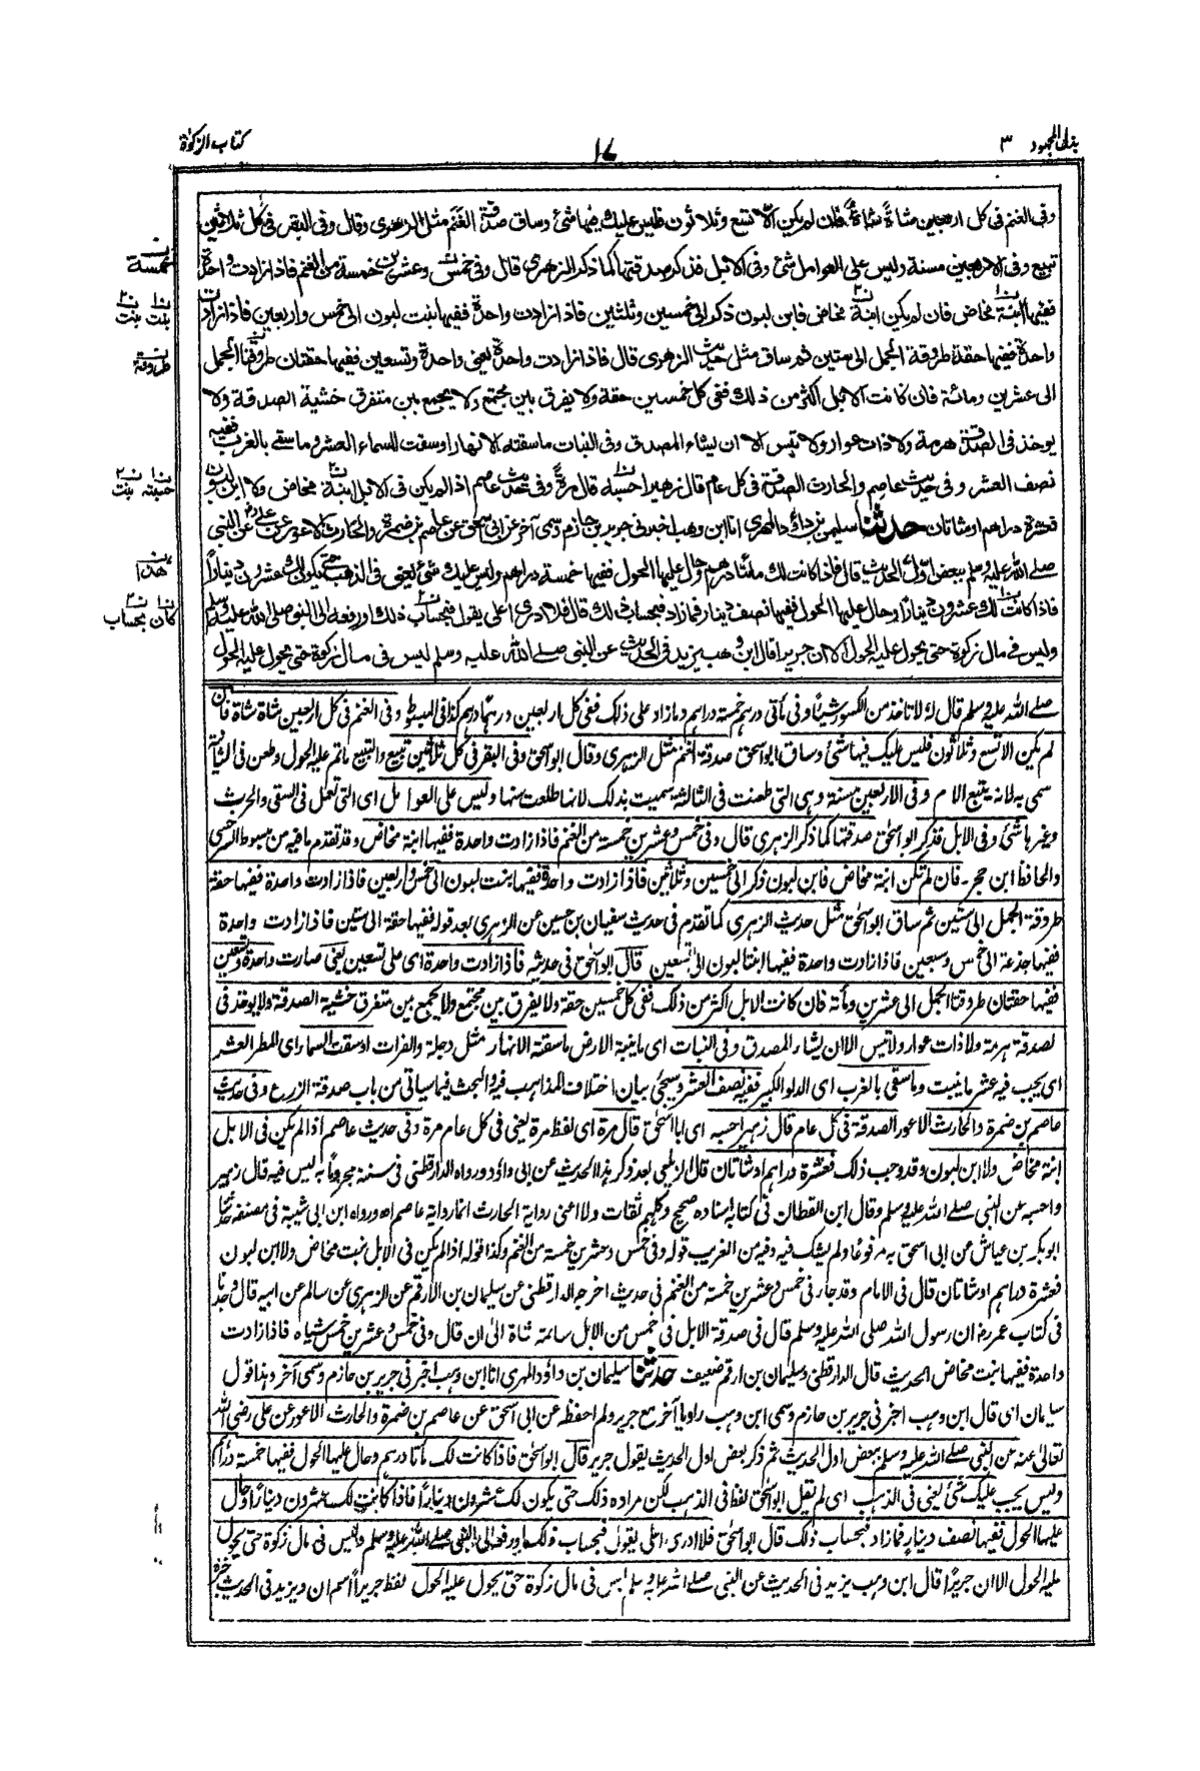 بذل المجهود ٣
١٧
كتاب الزكوٰة
وفى الغنم فى كل اربعين شاةً شاةٌ فان لم يكن الا تسع وثلاثون فليس عليك فيها شئ وساق صدقة الغنم مثل الزهرى وقال وفى البقر فى كل ثلاثين
تبيع وفى الاربعين مسنة وليس على العوامل شئ وفى الابل فذكر صدقتها كما ذكر الزهرى قال وفى خمس وعشرين خمسة من الغنم فاذا زادت واحدة
ففيها ابنة مخاض فان لم يكن ابنة مخاض فابن لبون ذكر الى خمس وثلثين فاذا زادت واحدة ففيها بنت لبون الى خمس واربعين فاذا زادت
واحدة ففيها حقة طروقة الجمل الى ستين ثم ساق مثل حديث الزهرى قال فاذا زادت واحدة يعنى واحدة وتسعين ففيها حقتان طروقتا الجمل
الى عشرين ومائة فان كانت الابل اكثر من ذلك ففى كل خمسين حقة ولا يفرق بين مجتمع ولا يجمع بين متفرق خشية الصدقة ولا
يوخذ فى الصدقة هرمة ولا ذات عوار ولا تيس الا ان يشاء المصدق وفى النبات ما سقته الانهار او سقت السماء العشر وما سقى بالغرب ففيه
نصف العشر وفى حديث عاصم والحارث الصدقة فى كل عام قال زهير احسبه قال مرةً وفى حديث عاصم اذا لم يكن فى الابل ابنة مخاض ولا ابن لبون
فعشرة دراهم او شاتان حدثنا سليمن بن داؤد المهرى انا ابن وهب اخبرنى جرير بن حازم وسمى آخر عن ابى اسحق عن عاصم بن ضمرة والحارث الاعور عن على عن النبى
صلے الله عليه وسلم ببعض اول الحديث قال فاذا كانت لك مائتا درهم وحال عليها الحول ففيها خمسة دراهم وليس عليك شئ يعنى فى الذهب حتى يكون لك عشرون ديناراً
فاذا كانت لك عشرون ديناراً وحال عليها الحول ففيها نصف دينار فما زاد فبحساب ذلك قال فلا ادرى اعلى يقول فبحساب ذلك او رفعه الى النبى صلى الله عليه وسلم
وليس فى مال زكوة حتى يحول عليه الحول الا ان جريرا قال ابن وهب يزيد فى الحديث عن النبى صلے الله عليه وسلم ليس فى مال زكوة حتى يحول عليه الحول
خمسة
بنت بنت
طروقة
حسبته بنت
هذا
كان بحساب
صلے الله عليه وسلم قال له لا تاخذ من الكسور شيئا وفى مأتى درهم خمسة دراهم وما زاد على ذلك ففى كل اربعين درهما درهم كذا فى المبسوط وفى الغنم فى كل اربعين شاة شاة فان
لم يكن الا تسع وثلاثون فليس عليك فيها شئ وساق ابو اسحق صدقة الغنم مثل الزهرى وقال ابو اسحق وفى البقر فى كل ثلاثين تبيع والتبيع ما تم عليه الحول وطعن فى الثانية
سمى به لانه يتبع الام وفى الاربعين مسنة وهى التى طعنت فى الثالثة سميت بذلك لانها طلعت سنها وليس على العوامل اى التى تعمل فى السقى والحرث
وغيرها شئ وفى الابل فذكر ابو اسحٰق صدقتها كما ذكر الزهرى قال وفى خمس وعشرين خمسة من الغنم فاذا زادت واحدة ففيها ابنة مخاض وقد تقدم ما فيه من مبسوط السرخسى
والحافظ ابن حجر۔ فان لم تكن ابنة مخاض فابن لبون ذكر الى خمس وثلاثين فاذا زادت واحدة ففيها بنت لبون الى خمس واربعين فاذا زادت واحدة ففيها حقة
طروقة الجمل الى ستين ثم ساق ابو اسحٰق مثل حديث الزهرى كما تقدم فى حديث سفيان بن حسين عن الزهرى بعد قوله ففيها حقة الى ستين فاذا زادت واحدة
ففيها جذعة الى خمس وسبعين فاذا زادت واحدة ففيها ابنتا لبون الى تسعين قال ابو اسحٰق فى حديثه فاذا زادت واحدة اى على تسعين يعنى صارت واحدة وتسعين
ففيها حقتان طروقتا الجمل الى عشرين ومأة فان كانت الابل اكثر من ذلك ففى كل خمسين حقة ولا يفرق بين مجتمع ولا يجمع بين متفرق خشية الصدقة ولا يوخذ فى
لصدقة هرمة ولا ذات عوار ولا تيس الا ان يشاء المصدق وفى النبات اى ما ينبته الارض ما سقته الانهار مثل دجلة والفرات او سقت السماء اى المطر العشر
اى يجب فيه عشر ما ينبت وما سقى بالغرب اى الدلو الكبير ففيه نصف العشر وسيجئ بيان اختلاف المذاهب فيه والبحث فيما سياتى من باب صدقة الزرع وفى حديث
عاصم بن ضمرة والحارث الاعور الصدقة فى كل عام قال زهير احسبه اى ابا اسحٰق قال مرة اى لفظ مرة يعنى فى كل عام مرة وفى حديث عاصم اذا لم يكن فى الابل
ابنة مخاض ولا ابن لبون وقد وجب ذلك فعشرة دراهم او شاتان قال الزيلعى بعد ذكر هذا الحديث عن ابى داؤد ورواه الدارقطنى فى سننه مجزوما به ليس فيه قال زهير
واحسبه عن النبى صلے الله عليه وسلم وقال ابن القطان فى كتابه اسناده صحيح وكلهم ثقات ولا اعنى رواية الحارث انما رواية عاصم اھ ورواه ابن ابى شيبة فى مصنفه حدثنا
ابو بكر بن عياش عن ابى اسحق به مرفوعا ولم يشك فيه وفيه من الغريب قوله وفى خمس وعشرين خمسة من الغنم وكذا قوله اذا لم يكن فى الابل بنت مخاض ولا ابن لبون
فعشرة دراهم او شاتان قال فى الامام وقد جاء فى خمس وعشرين خمسة من الغنم فى حديث اخرجه الدارقطنى عن سليمان بن الارقم عن الزهرى عن سالم عن ابيه قال وجدنا
فى كتاب عمر رض ان رسول الله صلى الله عليه وسلم قال فى صدقة الابل فى خمس من الابل سائمة شاة الى ان قال وفى خمس وعشرين خمس شياه فاذا زادت
واحدة ففيها بنت مخاض الحديث قال الدارقطنى وسليمان بن ارقم ضعيف حدثنا سليمان بن داؤد المهرى انا ابن وهب اخبرنى جرير بن حازم وسمى آخر وهذا قول
سليمان اى قال ابن وهب اخبرنى جرير بن حازم وسمى ابن وهب راويا آخر مع جرير ولم احفظه عن ابى اسحق عن عاصم بن ضمرة والحارث الاعور عن على رضى الله
تعالٰى عنه عن النبى صلے الله عليه وسلم ببعض اول الحديث ثم ذكر بعض اول الحديث يقول جرير قال ابو اسحٰق فاذا كانت لك مأتا درهم وحال عليها الحول ففيها خمسة دراهم
وليس يجب عليك شئ يعنى فى الذهب اى لم نقل ابو اسحٰق لفظ فى الذهب لكن مراده ذلك حتى يكون لك عشرون ديناراً فاذا كانت لك عشرون ديناراً وحال
عليها الحول ففيها نصف دينار فما زاد فبحساب ذلك قال ابو اسحٰق فلا ادرى اعلى يقول فبحساب ذلك او رفعه الى النبى صلے الله عليه وسلم وليس فى مال زكوة حتى يحول
عليه الحول الا ان جريراً قال ابن وهب يزيد فى الحديث عن النبى صلے الله عليه وسلم ليس فى مال زكوة حتى يحول عليه الحول لفظ جريراً اسم ان ويزيد فى الحديث خبره